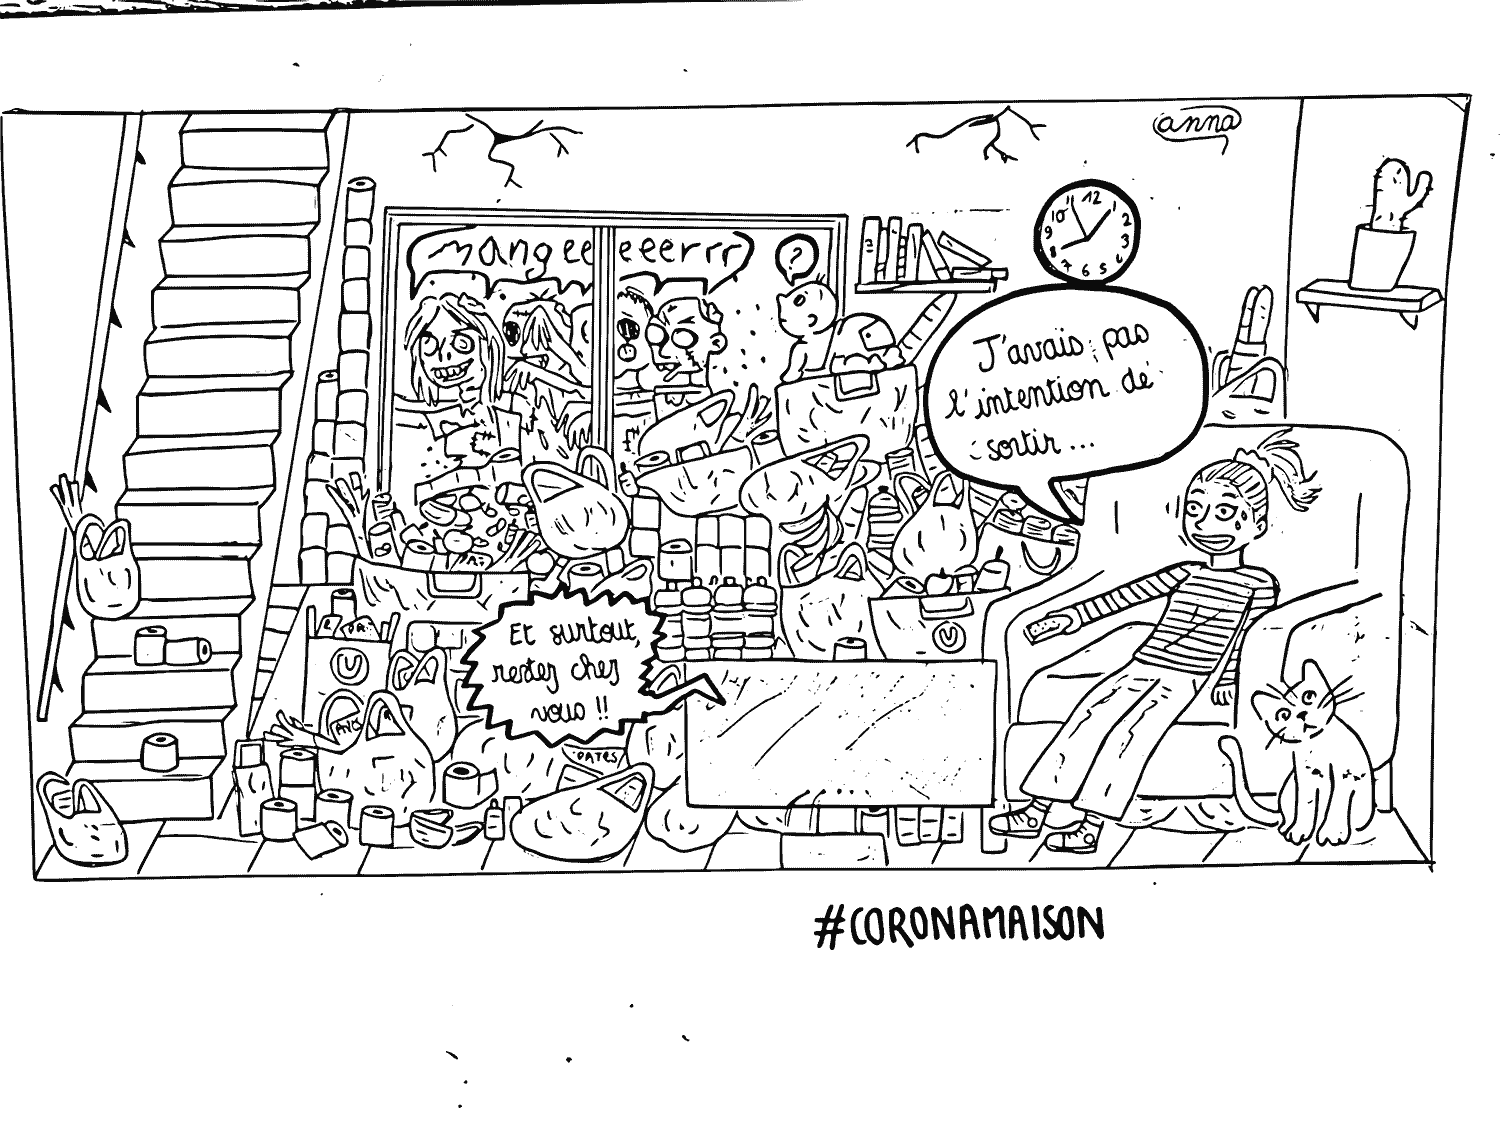 anna
mangeeeeeerrr
?
11 12 1
10 2
9 3
8 4
7 6 5
J'avais pas
l'intention de
sortir...
Et surtout,
restez chez
vous !!
U
U
PATES
#CORONAMAISON